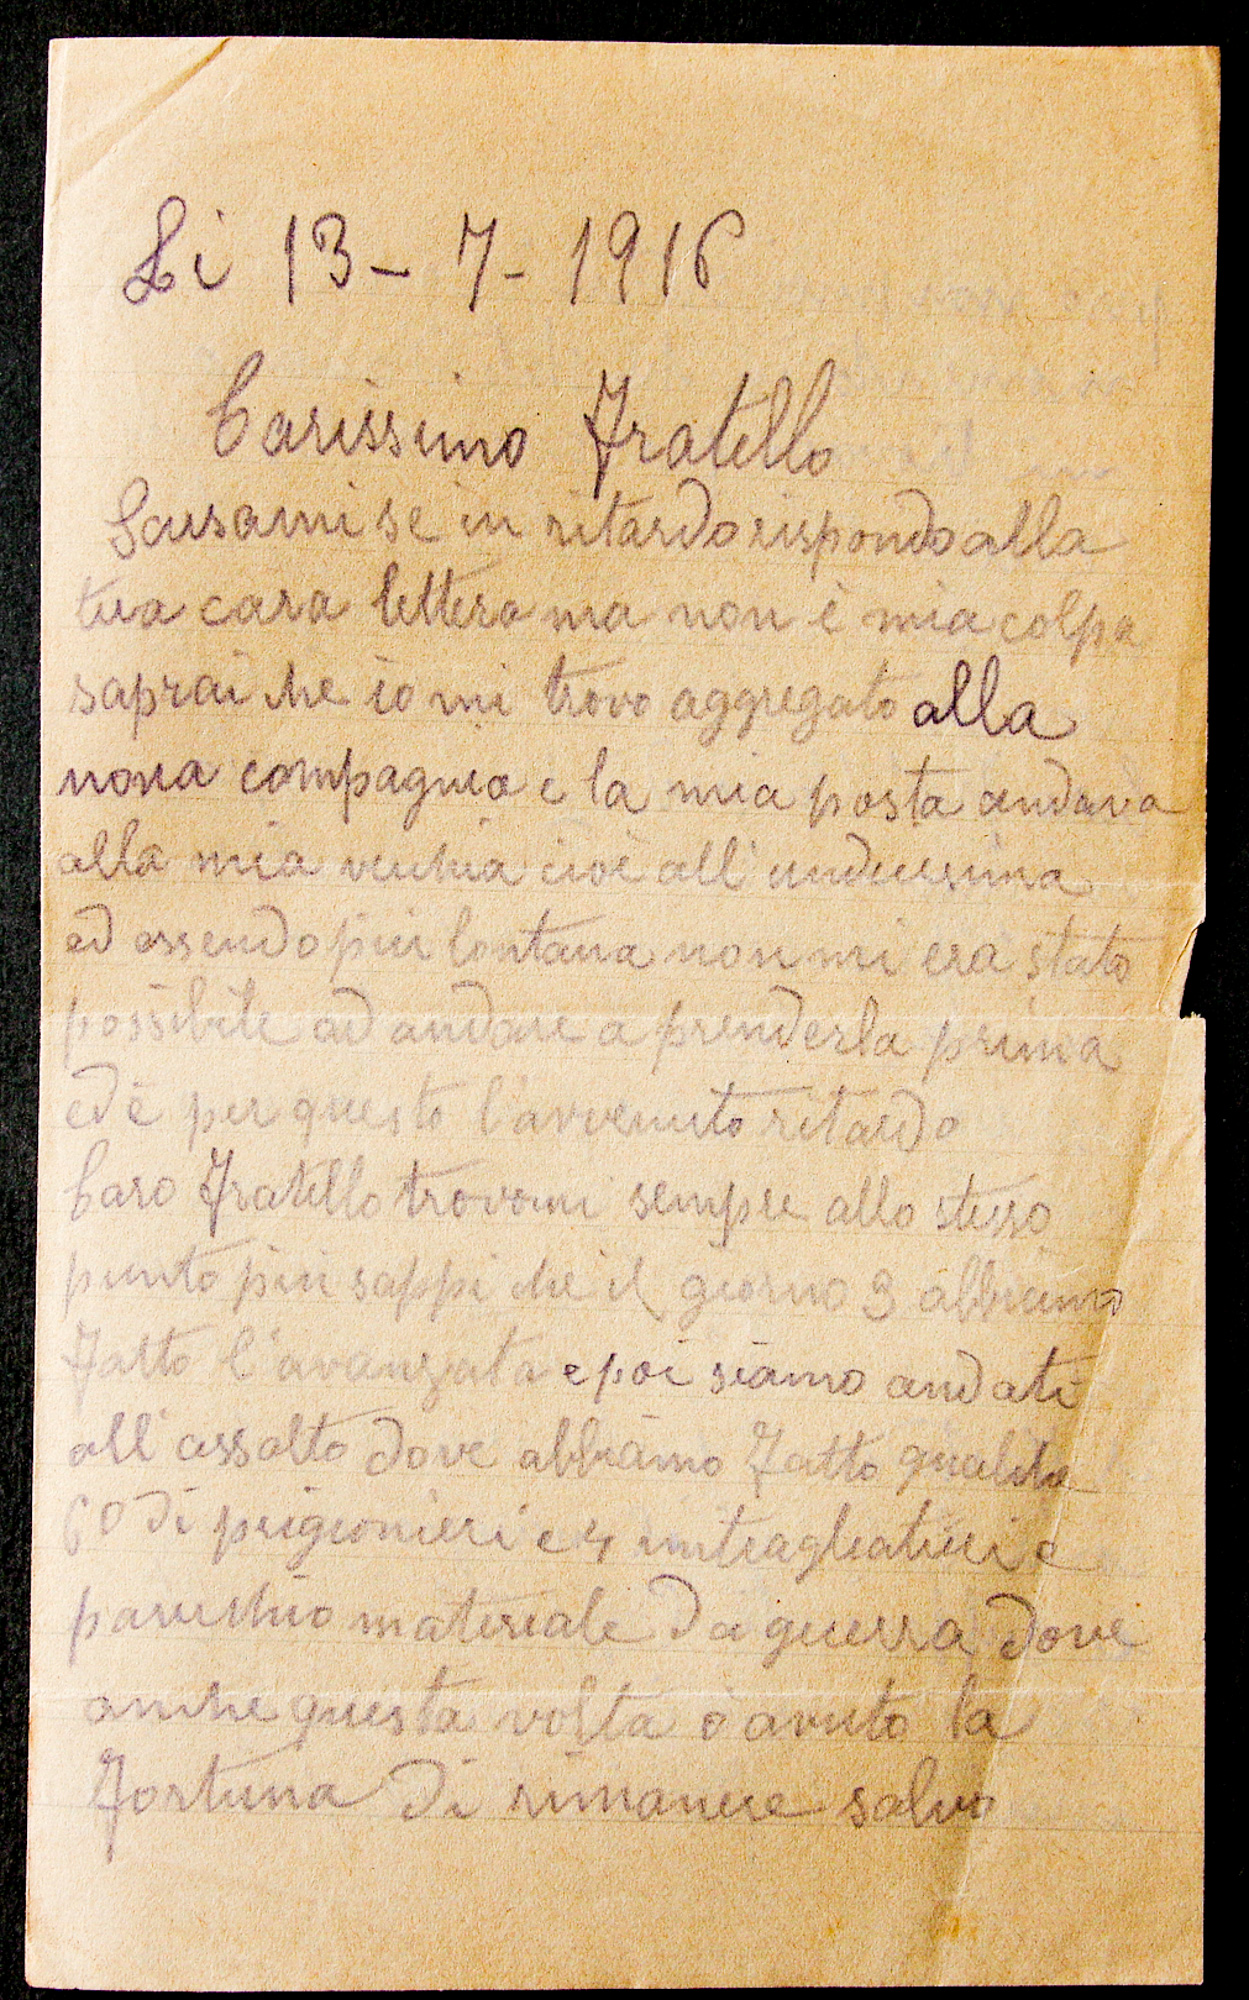 Li 13 - 7 - 1916
Carissimo Fratello
Scusami se in ritardo rispondo alla
tua cara lettera ma non è mia colpa
saprai che io mi trovo aggregato alla
nona compagnia e la mia posta andava
alla mia vecchia cioè all'undicesima
ed essendo più lontana non mi era stato
possibile ad andare a prenderla prima
ed è per questo l'avvenuto ritardo
Caro Fratello trovomi sempre allo stesso
punto più sappi che il giorno 3 abbiamo
Fatto l'avanzata e poi siamo andati
all'assalto dove abbiamo Fatto
60 di prigionieri e 4 mitragliatrici e
parecchio materiale da guerra dove
anche questa volta ò avuto la
Fortuna di rimanere salvo